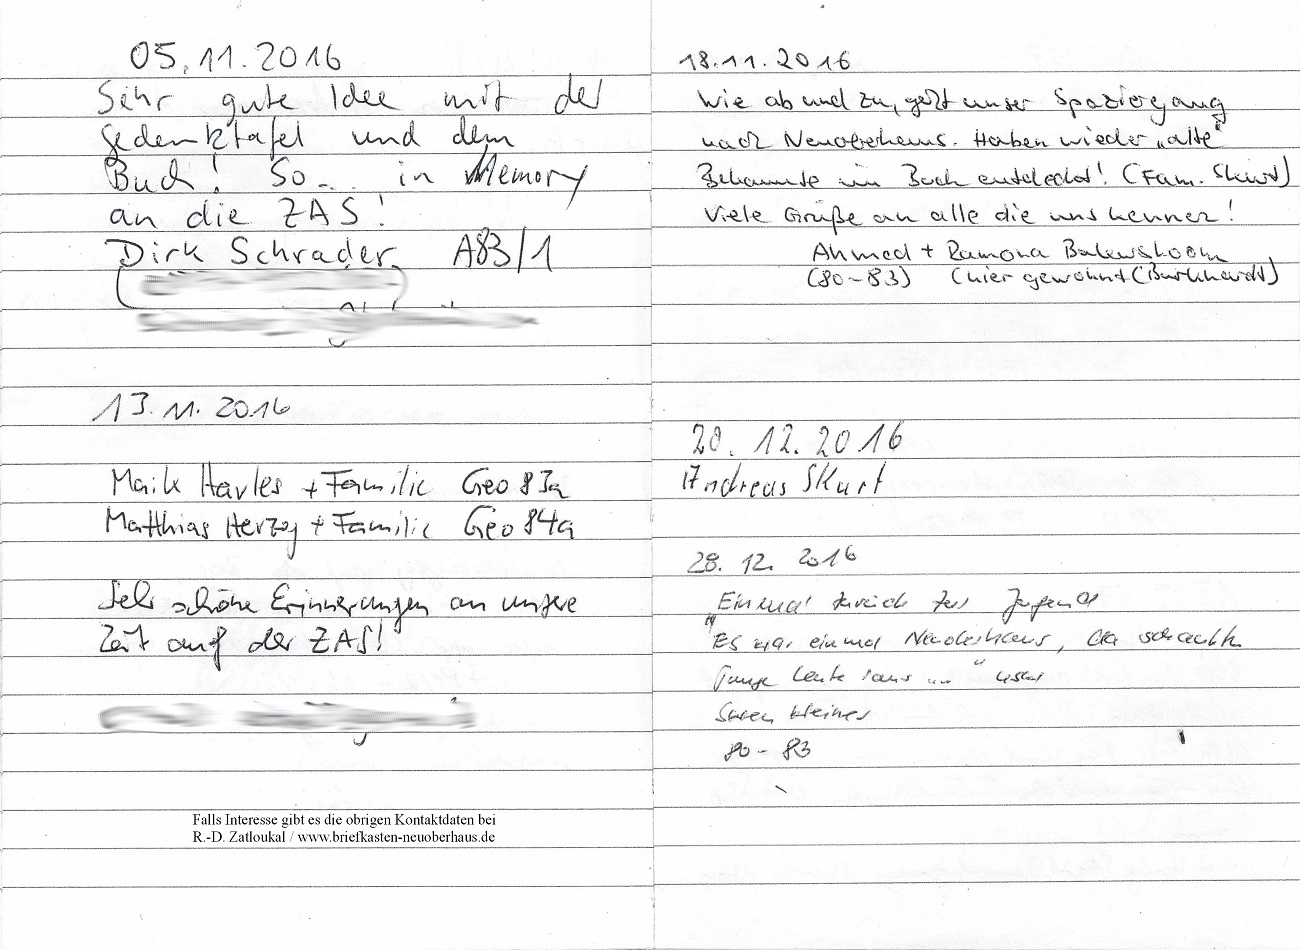 05.11.2016
Sehr gute Idee mit der
Gedenktafel und dem
Buch! So... in Memory
an die ZAS!
Dirk Schrader A83/1
13.11.2016
Maik Harles + Familie Geo 83a
Matthias Herzog + Familie Geo 84a
Sehr schöne Erinnerungen an unsere
Zeit auf der ZAS!
Falls Interesse gibt es die obrigen Kontaktdaten bei
R.-D. Zatloukal / www.briefkasten-neuoberhaus.de
18.11.2016
Wie ab und zu, geht unser Spaziergang
nach Neuoberhaus. Haben wieder „alte"
Bekannte im Buch entdeckt! (Fam. Skurt)
Viele Grüße an alle die uns kennen!
Ahmed + Ramona
(80-83) (hier gewohnt (Burkhardt)
20.12.2016
Andreas Skurt
28.12.2016
Einmal zurück zur Jugend
"Es war einmal Neuoberhaus, da schauten
junge Leute raus ..."
Kleiner
80-83